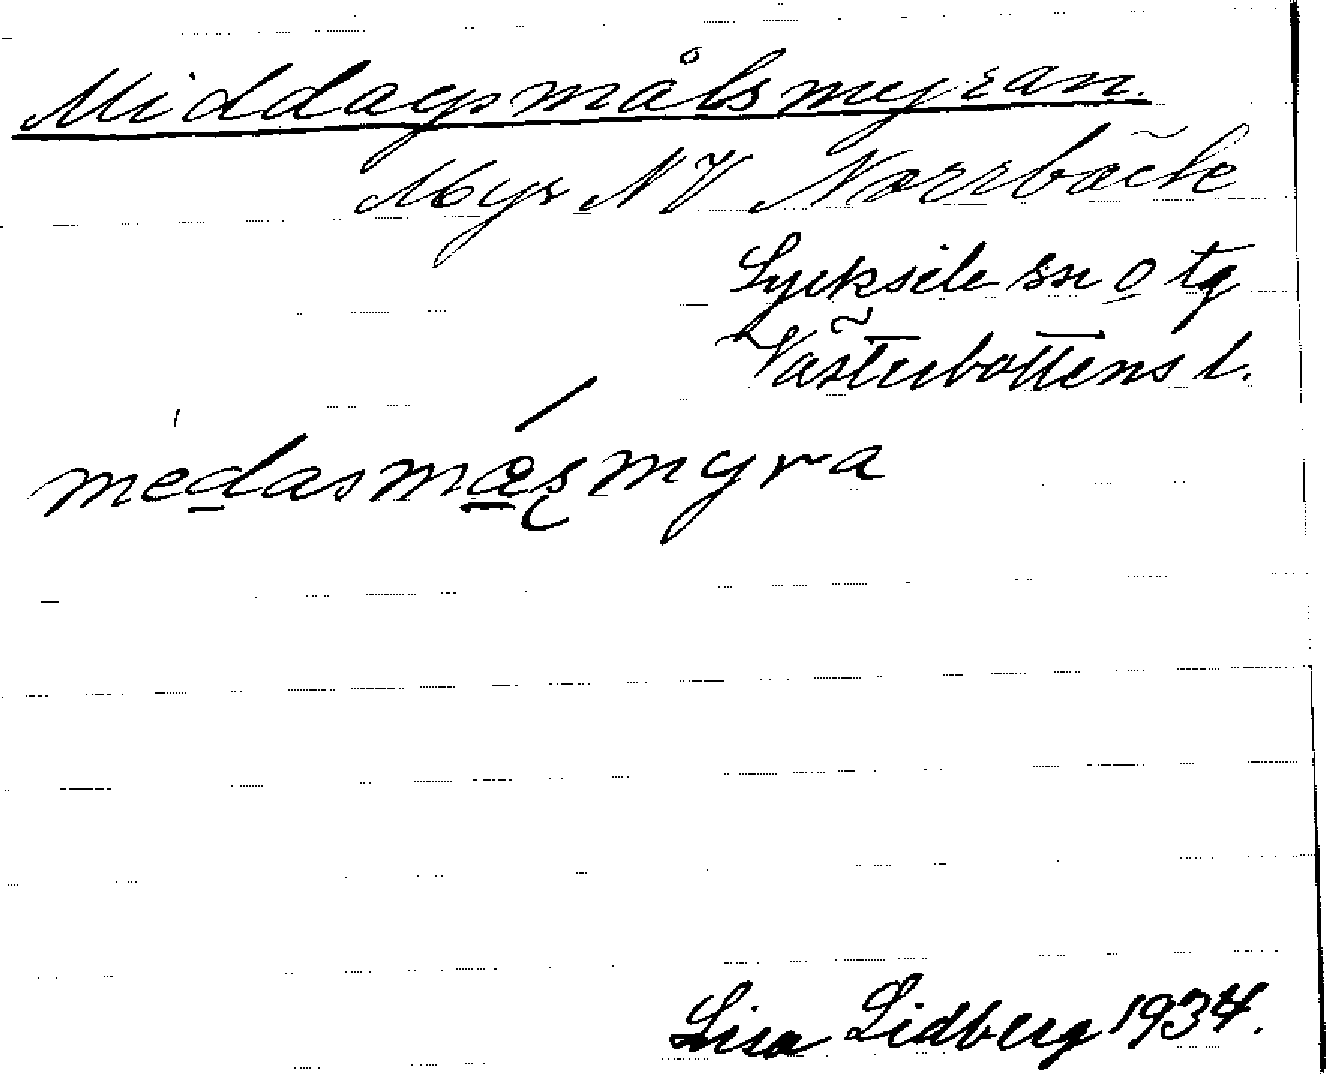 Middagsmålsmyran.
Myr NV Norrbäck
Lycksele sn o tg
Västerbottens l.
medasmæsmyra
Lisa Lidberg 1934.